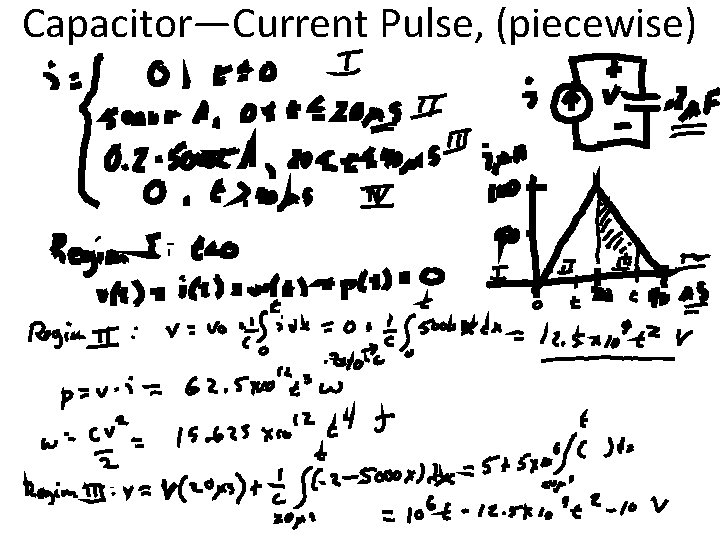 Capacitor—Current Pulse, (piecewise)
i = { 0 , t ≤ 0 I
5000t A, 0 ≤ t ≤ 20μs II
0.2 - 5000t A, 20 ≤ t ≤ 40μs III
0 , t > 40μs IV
i
+
v
-
.2μF
i, mA
100
50
I II III IV
0 t 20 t 40 μs
Region I: t<0
v(t) = i(t) = w(t) = p(t) = 0
Region II: v = v0 + 1/C ∫0^t i dx = 0 + 1/C ∫0^t 5000x dx = 12.5x10^9 t^2 V
.2x10^-6
p = v·i = 62.5x10^12 t^3 W
w = Cv^2/2 = 15.625 x10^12 t^4 J
Region III: v = V(20μs) + 1/C ∫20μs^t (.2-5000x) dx = 5 + 5x10^6 ∫20μs^t ( ) dx
= 10^6 t - 12.5x10^9 t^2 - 10 V